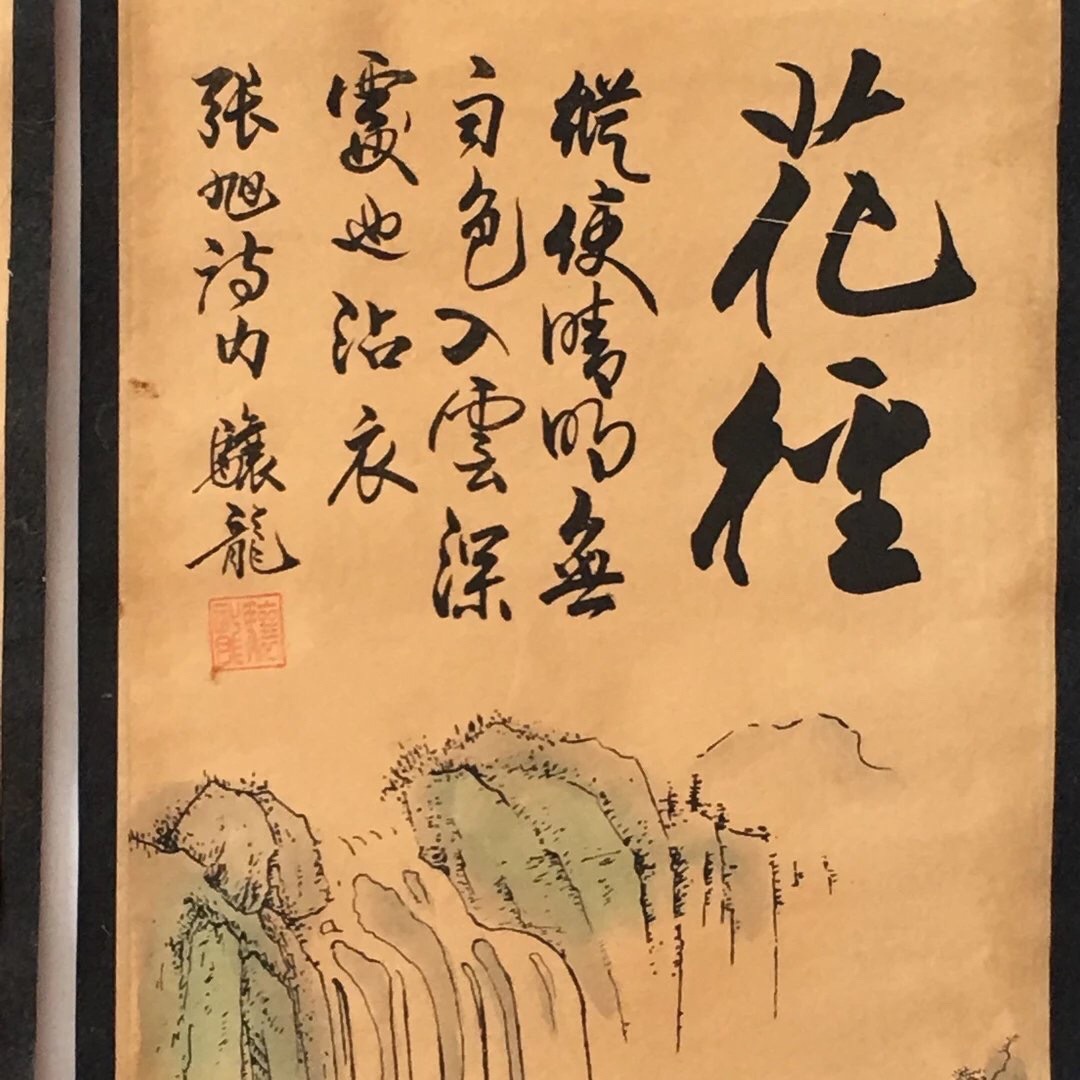 花徑
縱使晴明無
雨色入雲深
處也沾衣
張旭詩內 驤龍